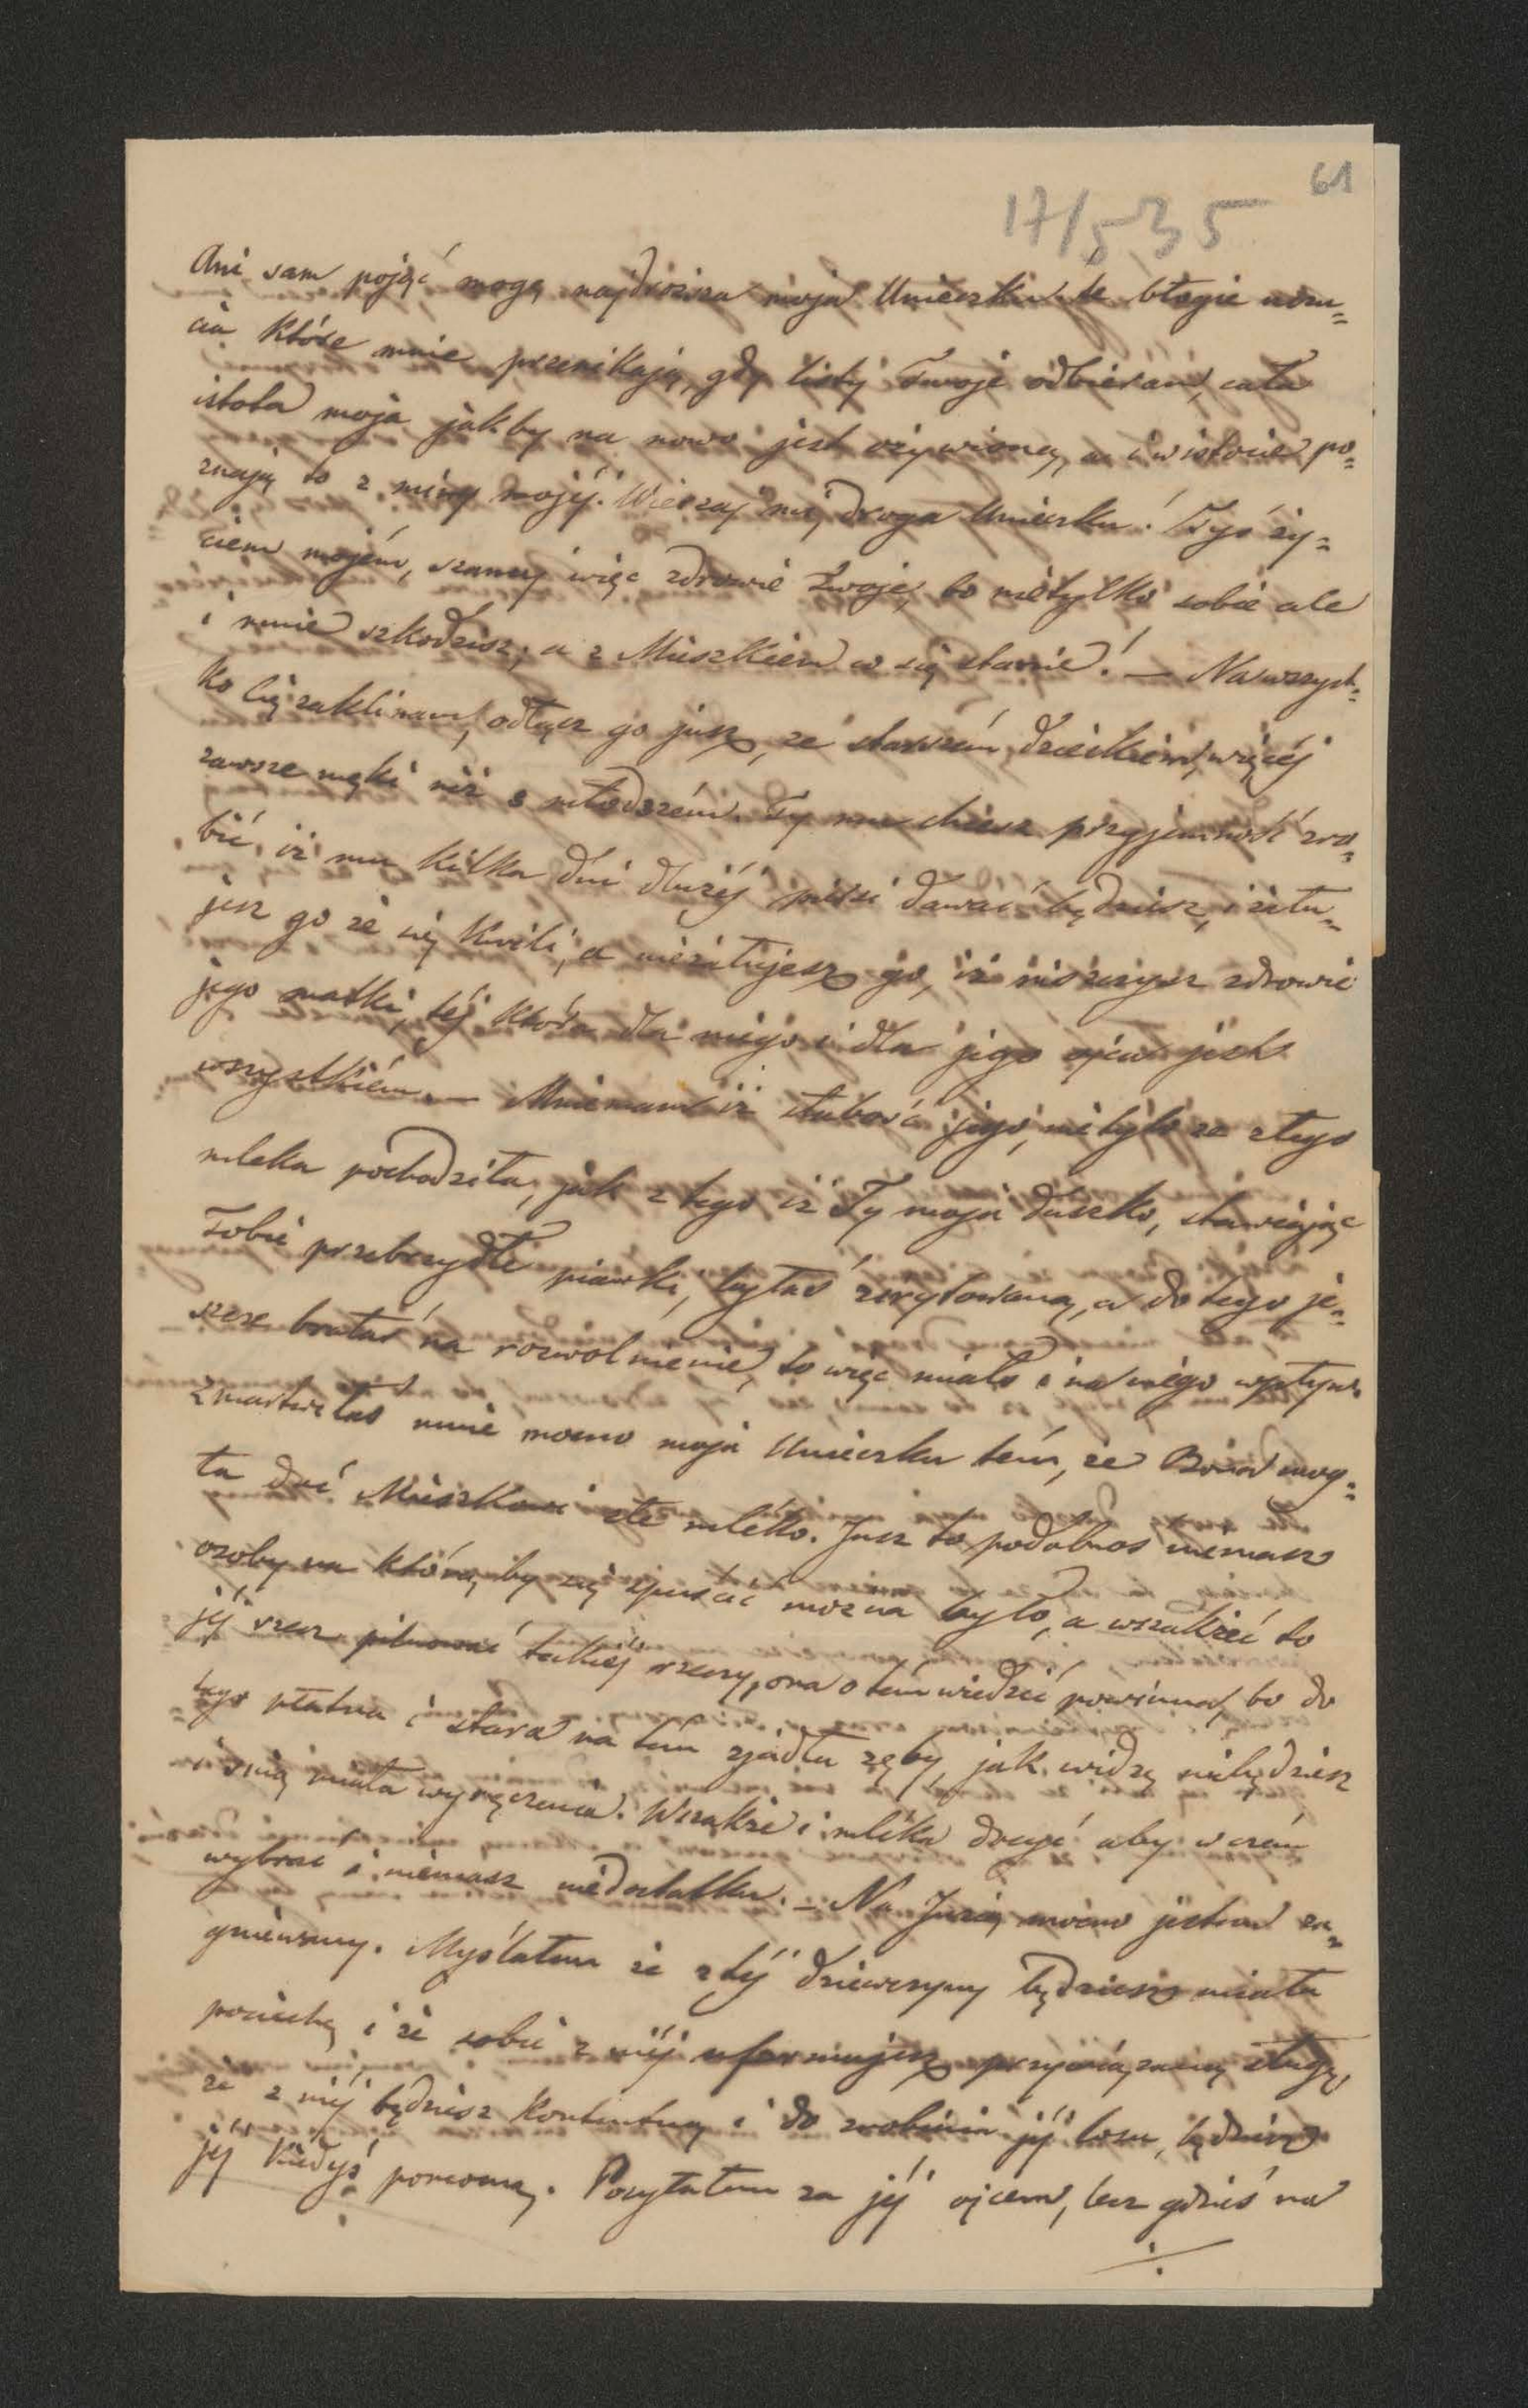 61
17/5 35
Ani sam pojąć mogę najdroższa moja Unieczku te błogie uczu=
cia które mnie przenikają, gdy listy Twoje odbieram, cała
istota moja jakby na nowo jest ożywioną, a i w istocie po=
znają to z miny mojéj. Wierzaj mi, droga Unieczku! Tyś ży=
ciem mojém, szanuj więc zdrowie Twoje, bo nietylko sobie ale
i mnie szkodzisz, a z Mieszkiem co się stanie! — Na wszyst=
ko Cię zaklinam, odłącz go już, ze starszém dzieckiem, więcéj
zawsze męki niż z młodszém. Ty mu chcesz przyjemność zro=
bić, iż mu kilka dni dłużéj piersi dawać będziesz, i żału=
jesz go że się kwili, a nieżałujesz go, iż niszczysz zdrowie
jego matki, téj która dla niego i dla jego ojca jest
wszystkiém. — Mniemam iż słabość jego, nietylko ze złego
mleka pochodziła, jak z tego iż Ty moja duszko, stawiając
Sobie przebrzydłe piawki, byłaś zirytowaną, a do tego je=
szcze brałaś na rozwolnienie, to więc miało i na niego wpływ.
Zmartwiłaś mnie mocno moja Unieczku tém, że Bona mog=
ła dać Mieszkowi złe mléko. Jusz to podobnos niemasz
osoby na którą by się spuścić można było, a wszakżeć to
jéj rzecz pilnować takiéj rzeczy, ona o tém wiedzieć powinna, bo do
tego płatna i stara na tém zjadła zęby, jak widzę niebędziesz
i z nią miała wyręczenia. Wszakże i mléka drugi aby w czém
wybrać i niemasz niedostatku. — Na Juzię mocno jestem za=
gniewany. Myślałem że z téj dziewczyny będziesz miała
pociechę i że sobie z niéj uformujesz przywiązaną sługę,
że z niéj będziesz kontentną i do zrobienia jéj losu, będziesz
jéj kiedyś pomocną. Posyłałem za jéj ojcem, lecz gdzieś na
./.